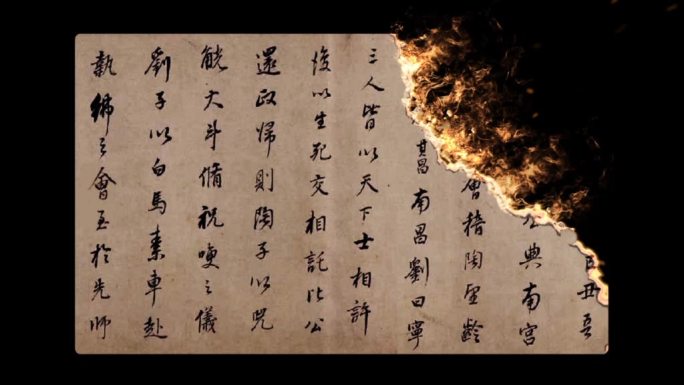 丑吾
典南宮
會稽陶望齡
其昌南昌劉曰寧
三人皆以天下士相許
後以生死交相託比公
還政歸則陶子以兕
觥大斗脩祝哽之儀
劉子以白馬素車赴
執紼之會至於先師